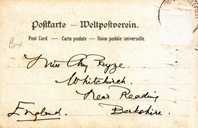 Postkarte – Weltpostverein.
Post Card — Carte postale — Union postale universelle.
Miss
Whitchurch
Near Reading
England. Berkshire.